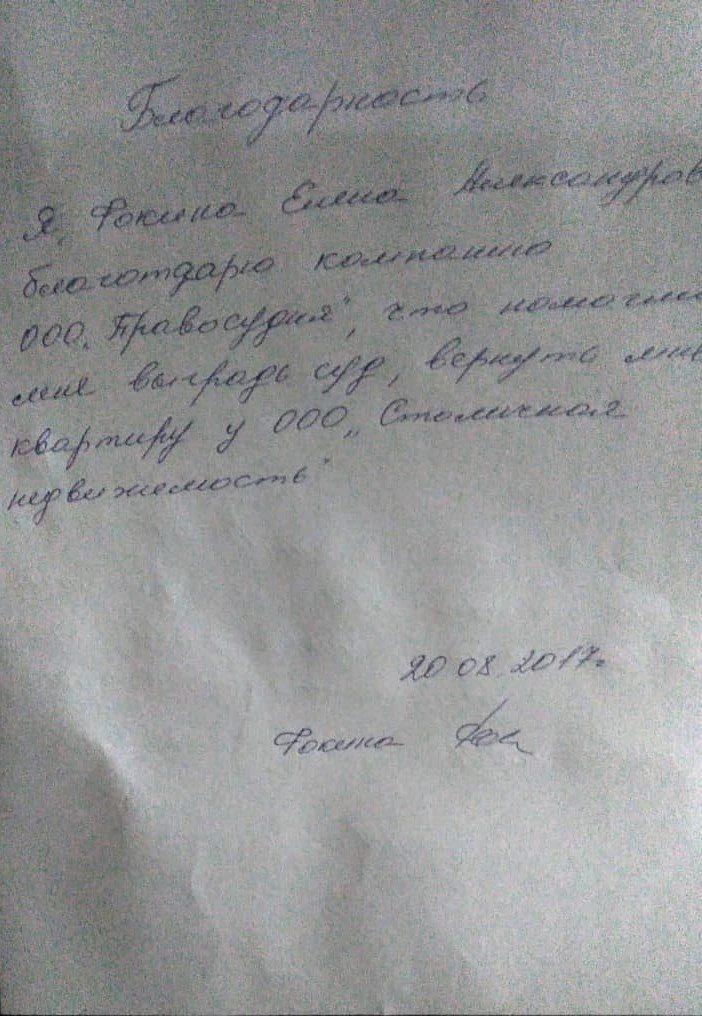 Благодарность
Я, Фокина Елена Александров
благотдарю компанию
ООО „Правосудия", что помогли
мне выградь суд, вернуть мне
квартиру у ООО „Столичная
недвижемость"
20 08 2017г
Фокина Фок